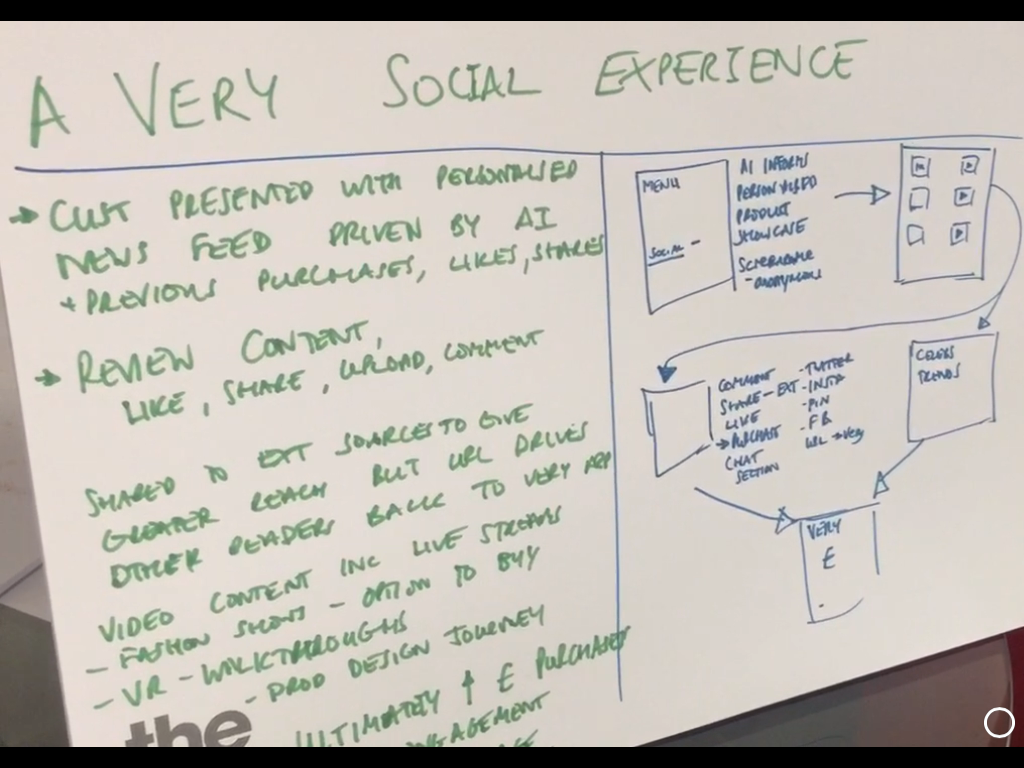 A VERY SOCIAL EXPERIENCE
→ CUST PRESENTED WITH PERSONALISED
NEWS FEED DRIVEN BY AI
+ PREVIOUS PURCHASES, LIKES, SHARES
→ REVIEW CONTENT,
LIKE, SHARE, UPLOAD, COMMENT
SHARED TO EXT SOURCES TO GIVE
GREATER REACH BUT URL DRIVES
OTHER READERS BACK TO VERY APP
VIDEO CONTENT INC LIVE STREAMS
- FASHION SHOWS - OPTION TO BUY
- VR - WALKTHROUGHS
- PROD DESIGN JOURNEY
ULTIMATELY ↑ £ PURCHASES
the
MENU
SOCIAL -
AI INFORMS
PERSONALISED
PRODUCT
SHOWCASE
- anonymous
COMMENT
SHARE - EXT
LIKE
→ PURCHASE
CHAT
SECTION
- TWITTER
- INSTA
- PIN
- FB
URL → Very
CELEBS
TRENDS
VERY
£